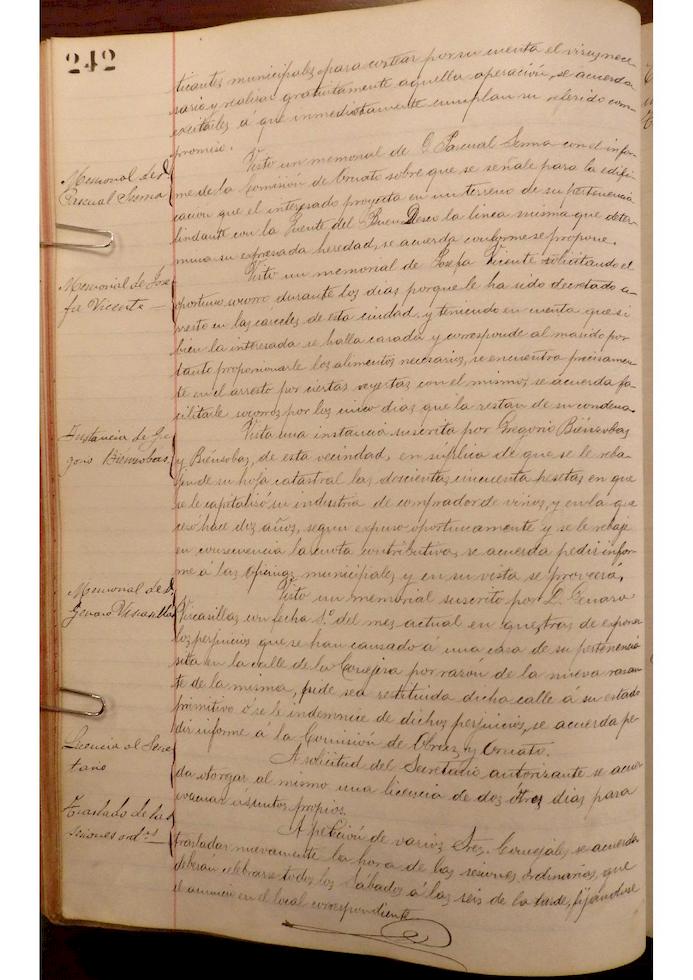 242
ticantes municipales para costear por su cuenta el virus nece-
sario y realizar gratuitamente aquella operación, se acuerda
excitarles á que inmediatamente cumplan su referido com-
promiso.
Memorial de D.
Pascual Serma
Visto un memorial de D. Pascual Serma con el infor-
me de la Comisión de Ornato sobre que se señale para la edifi-
cacion que el interesado proyecta en un terreno de su pertenencia
lindante con la Fuente del Buen Deseo la linea misma que deter-
mina su expresada heredad, se acuerda conforme se propone.
Memorial de Jose-
fa Vicente
Visto un memorial de Josefa Vicente solicitando el
oportuno socorro durante los dias porque le ha sido decretado a-
rresto en las cárceles de esta ciudad, y teniendo en cuenta que si
bien la interesada se halla casada y corresponde al marido por
tanto proporcionarle los alimentos necesarios, se encuentra precisamen-
te en el arresto por ciertas reyertas con el mismo, se acuerda fa-
cilitarle socorros por los cinco dias que la restan de su condena.
Instancia de Gre-
gorio Biensobas
Vista una instancia suscrita por Gregorio Biénsobas
y Biénsobas, de esta vecindad, en súplica de que se le reba-
jen de su hoja catastral las doscientas cincuenta pesetas en que
se le capitalizó su industria de comprador de vinos, y en la que
cesó hace dos años, segun expuso oportunamente y se le rebaje
en consecuencia la cuota contributiva, se acuerda pedir infor-
me á las oficinas municipales y en su vista se proveerá.
Memorial de D.
Genaro Vicasillas
Visto un memorial suscrito por D. Genaro
Vicasillas con fecha 1º. del mes actual en que tras de exponer
los perjuicios que se han causado á una casa de su pertenencia
sita en la calle de la Concejera por razón de la nueva rasan-
te de la misma, pide sea restituida dicha calle á su estado
primitivo ó se le indemnice de dichos perjuicios, se acuerda pe-
dir informe a la Comisión de Obras y Ornato.
Licencia al Secre-
tario
A solicitud del Secretario autorizante se acuer-
da otorgar al mismo una licencia de dos ó tres dias para
evacuar asuntos propios.
Traslado de las
sesiones ord.as
A petición de varios Sres. Concejales se acuerda
trasladar nuevamente la hora de las sesiones ordinarias, que
deberán celebrarse todos los Sábados á las seis de la tarde, fijándose
el anuncio en el local correspondiente